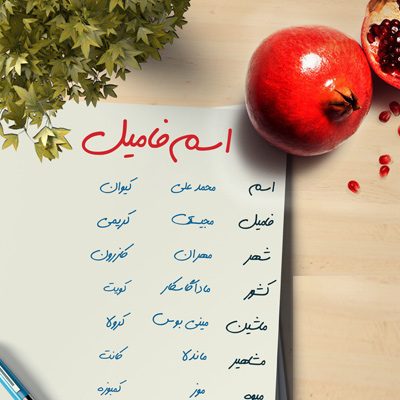 اسم فامیل
اسم محمد علی کیوان
فامیل مجیدی کریمی
شهر مهران کازرون
کشور ماداگاسکار کویت
ماشین مینی بوس کرولا
مشاهیر ماندلا کانت
میوه موز کمبوزه